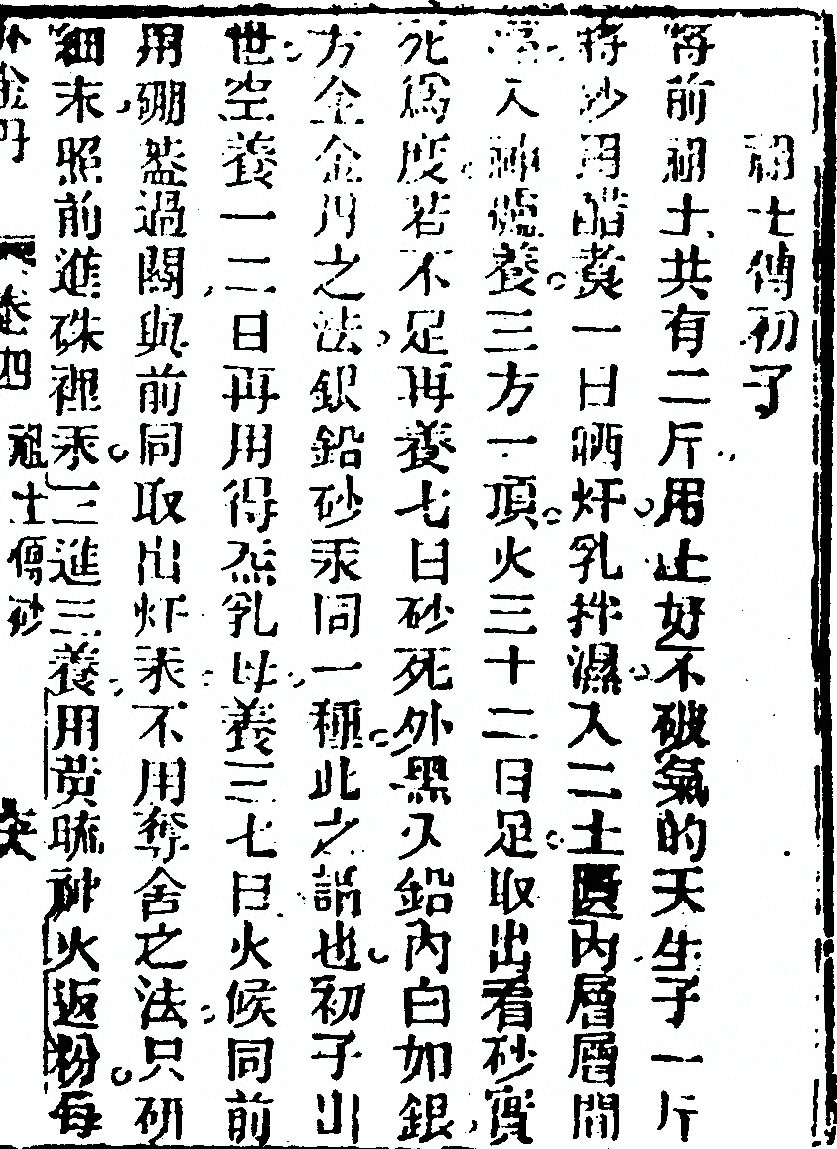 祖土傳初子
將前祖土共有二斤用止好不破氣的天生子一斤
將沙用醋煑一日晒炓乳拌濕入二土匱內層層間
入神爐養三方一項火三十二日足取出看砂實
死爲度若不足再養七日砂死外黑又鉛內白如銀
方全金丹之法銀鉛砂汞同一種此之謂也初子出
世空養一二日再用得炁乳母養三七日火候同前
用硼葢過關與前同取出炓汞不用奪舍之法只研
細末照前進硃裡汞三進三養用黃硫神火返粉每
外金丹 卷四 祖土傳砂